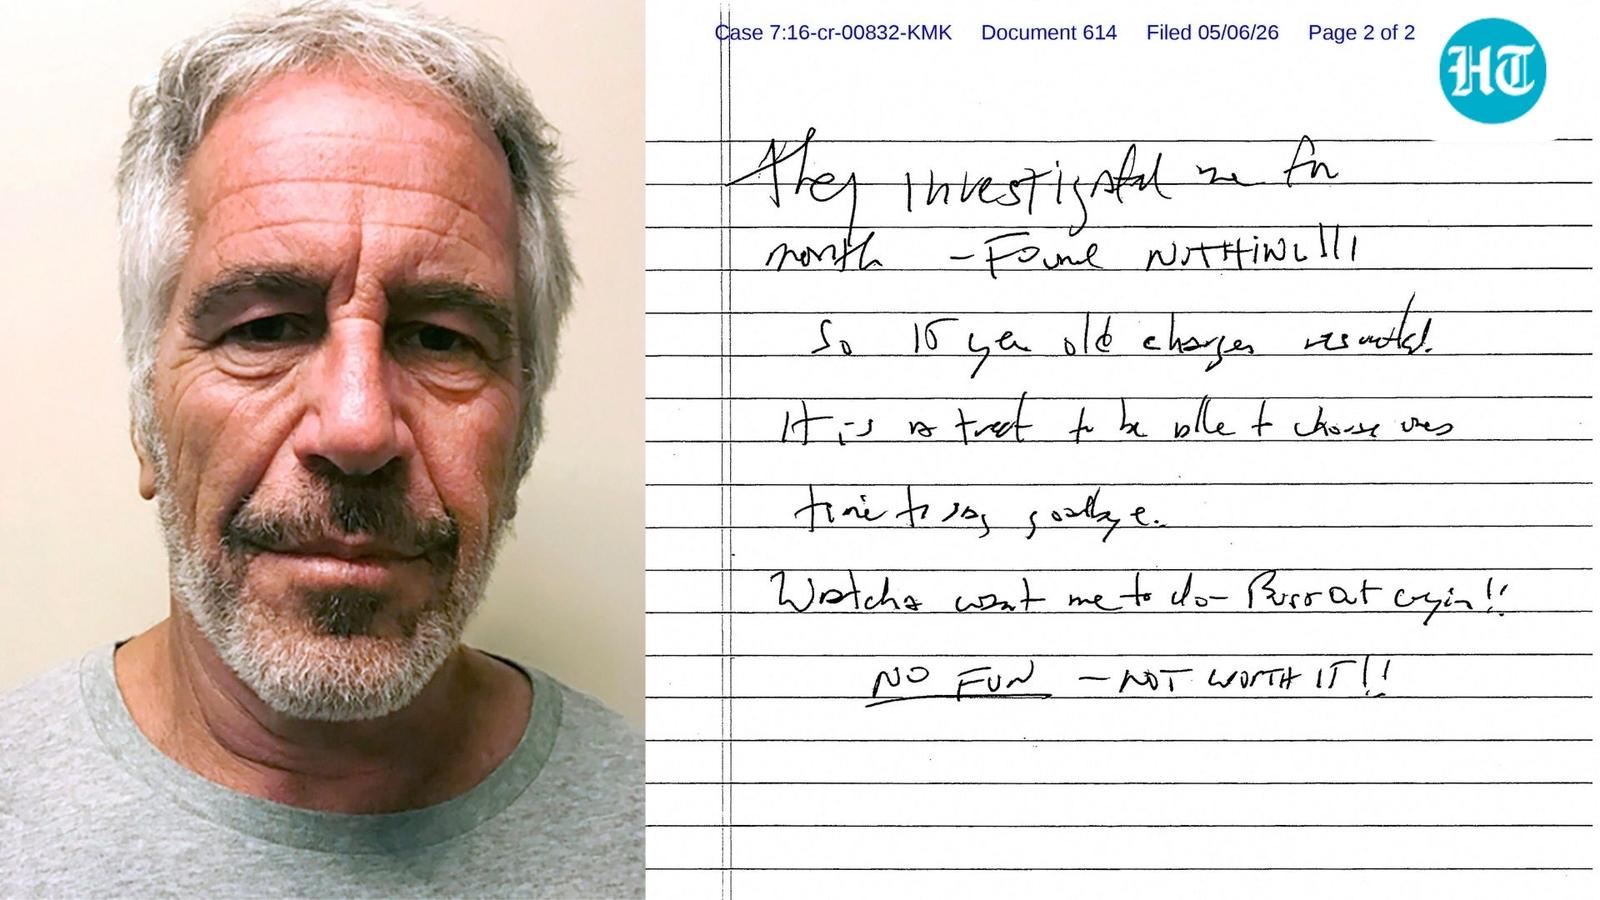 Case 7:16-cr-00832-KMK Document 614 Filed 05/06/26 Page 2 of 2
HT
They investigated me for
month – Found NOTHING!!!
So 15 year old charges resulted.
It is a treat to be able to choose ones
time to say goodbye.
Watcha want me to do – Burst out cryin!!
NO FUN – NOT WORTH IT!!